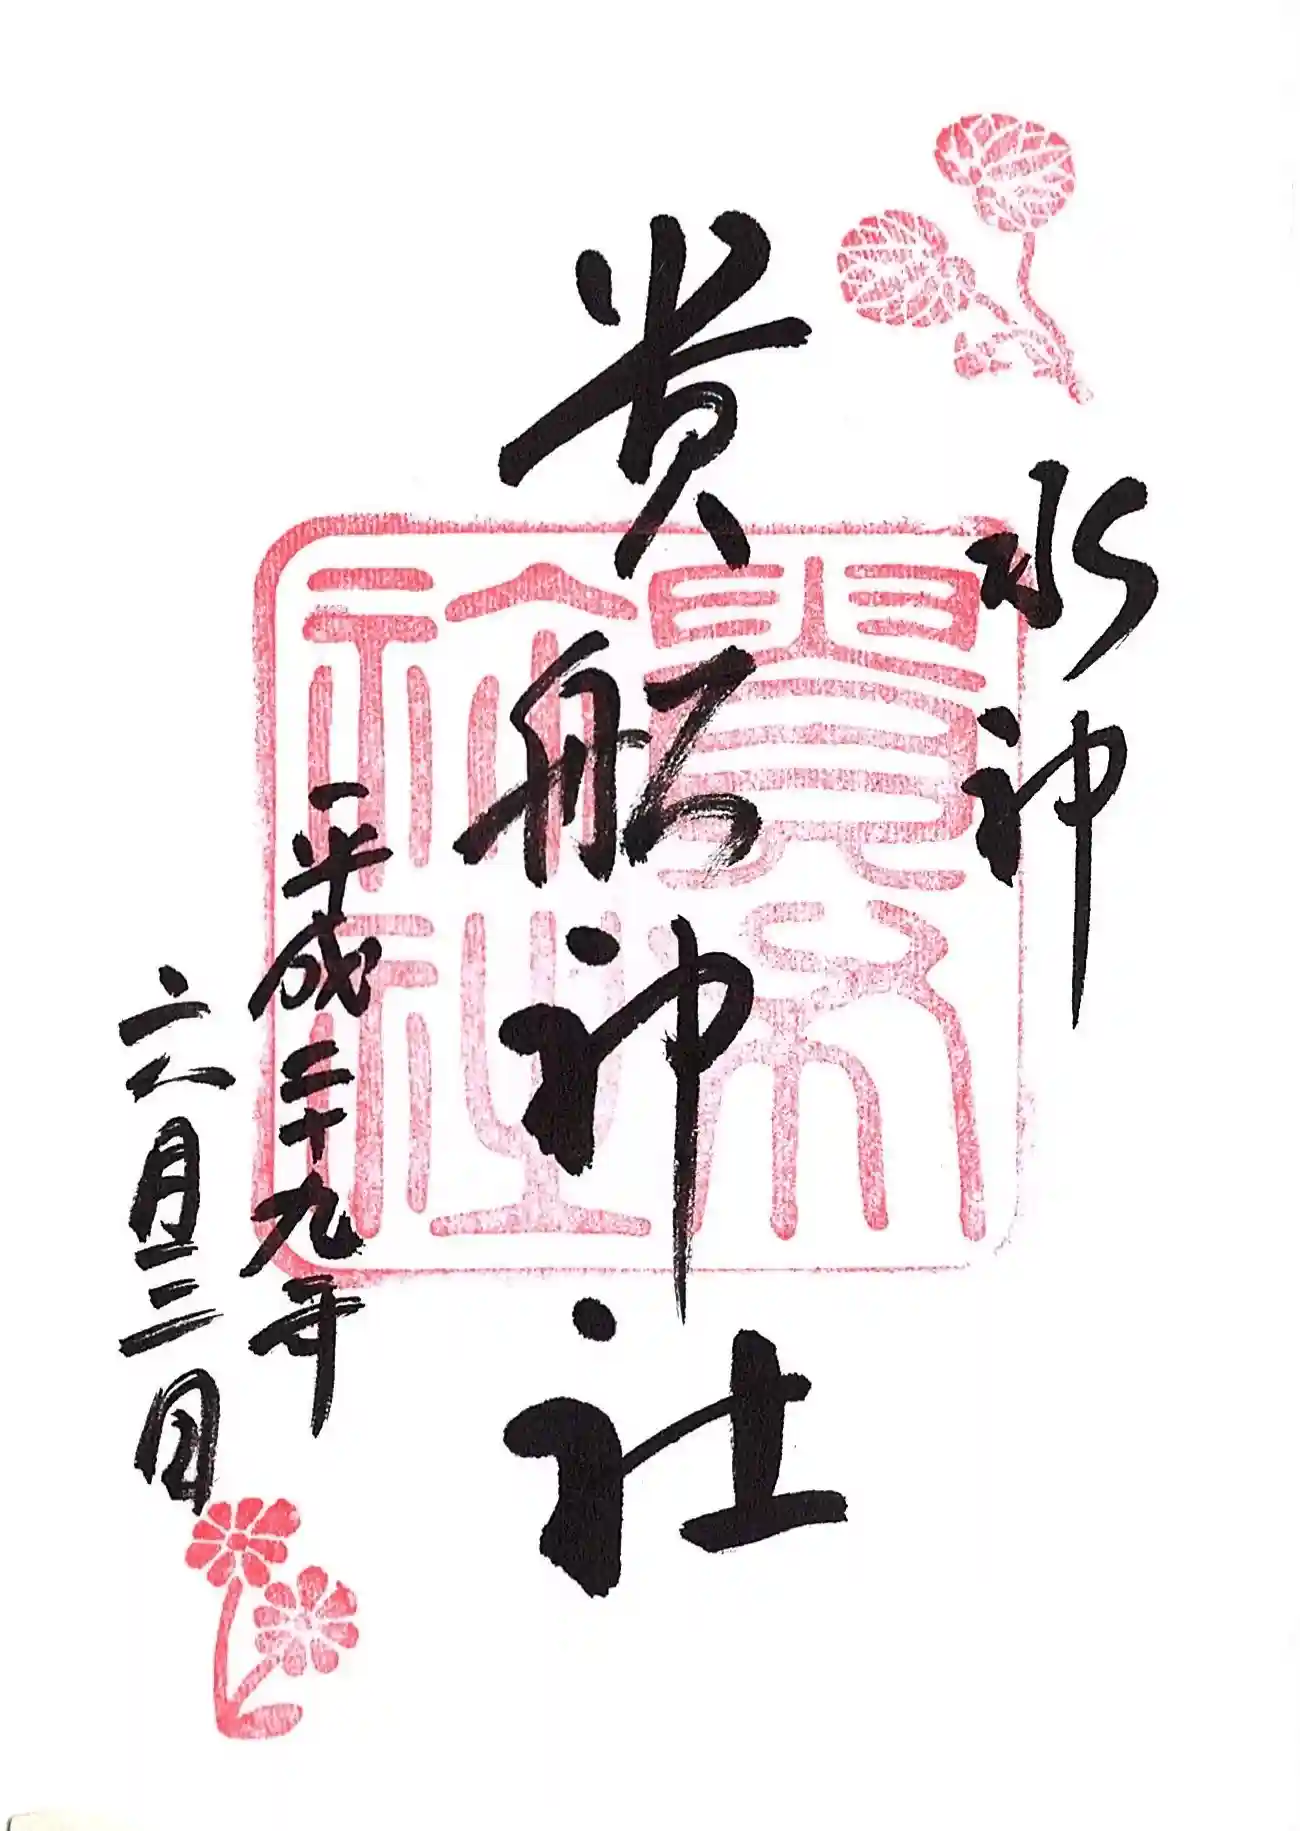 水神
貴船神社
平成二十九年
六月三日
貴布
祢社